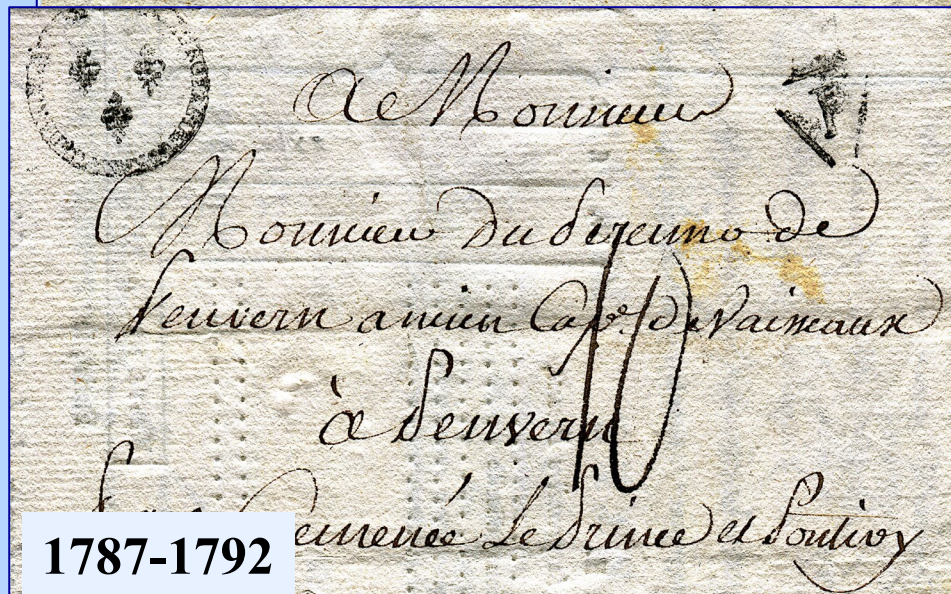 A Monsieur
Monsieur Du Perenno de
Penvern ancien Cap.e De Vaisseaux
à Penvern
10
Le Prince et Pontivy
1787-1792